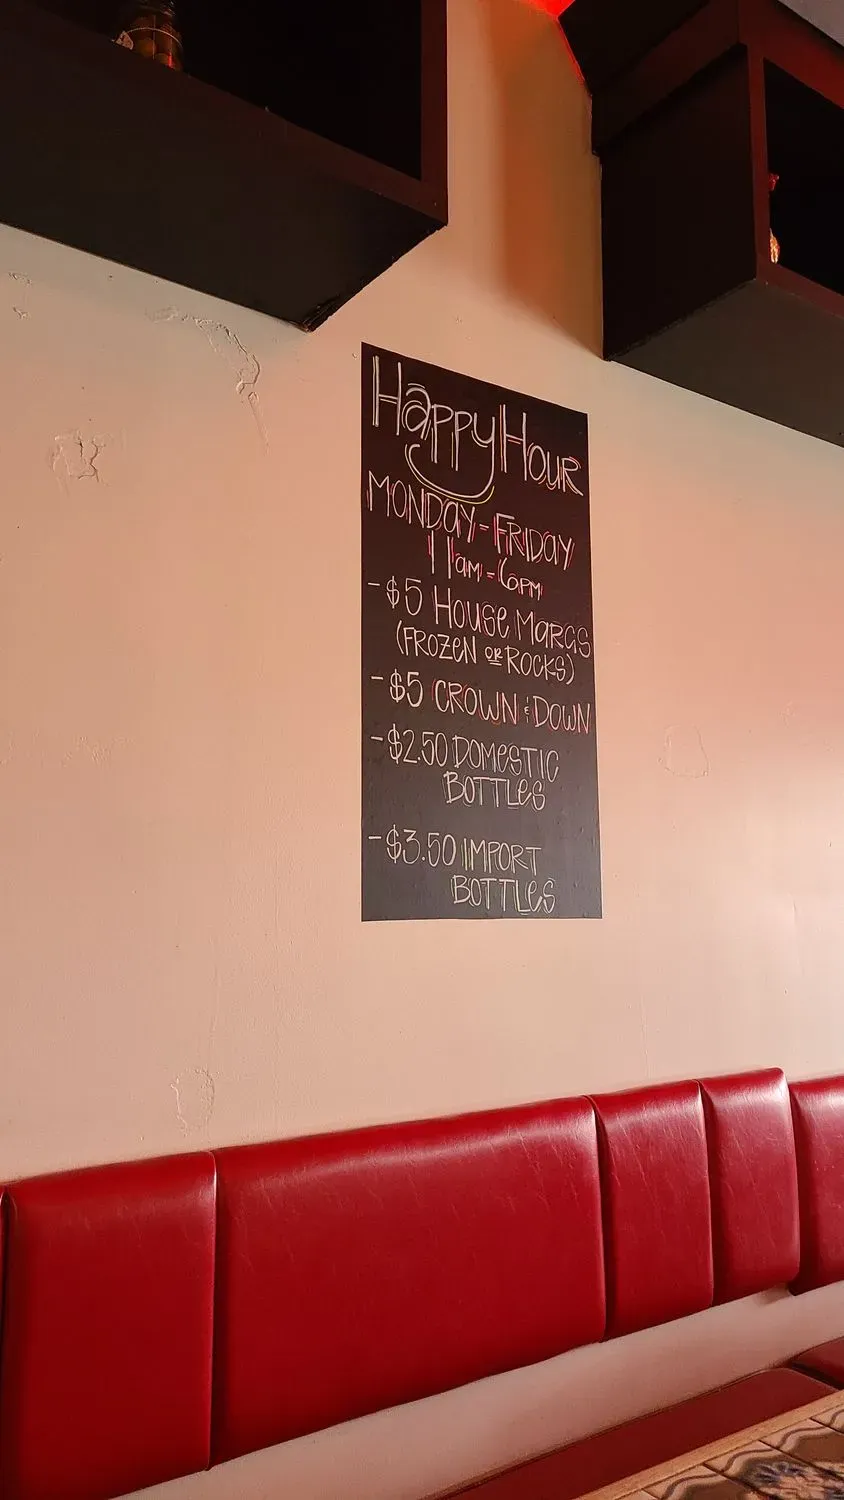 Happy Hour
MONDAY-FRIDAY
11am-6PM
- $5 House Margs
(FROZEN OR ROCKS)
- $5 CROWN & DOWN
- $2.50 DOMESTIC
BOTTLES
- $3.50 IMPORT
BOTTLES